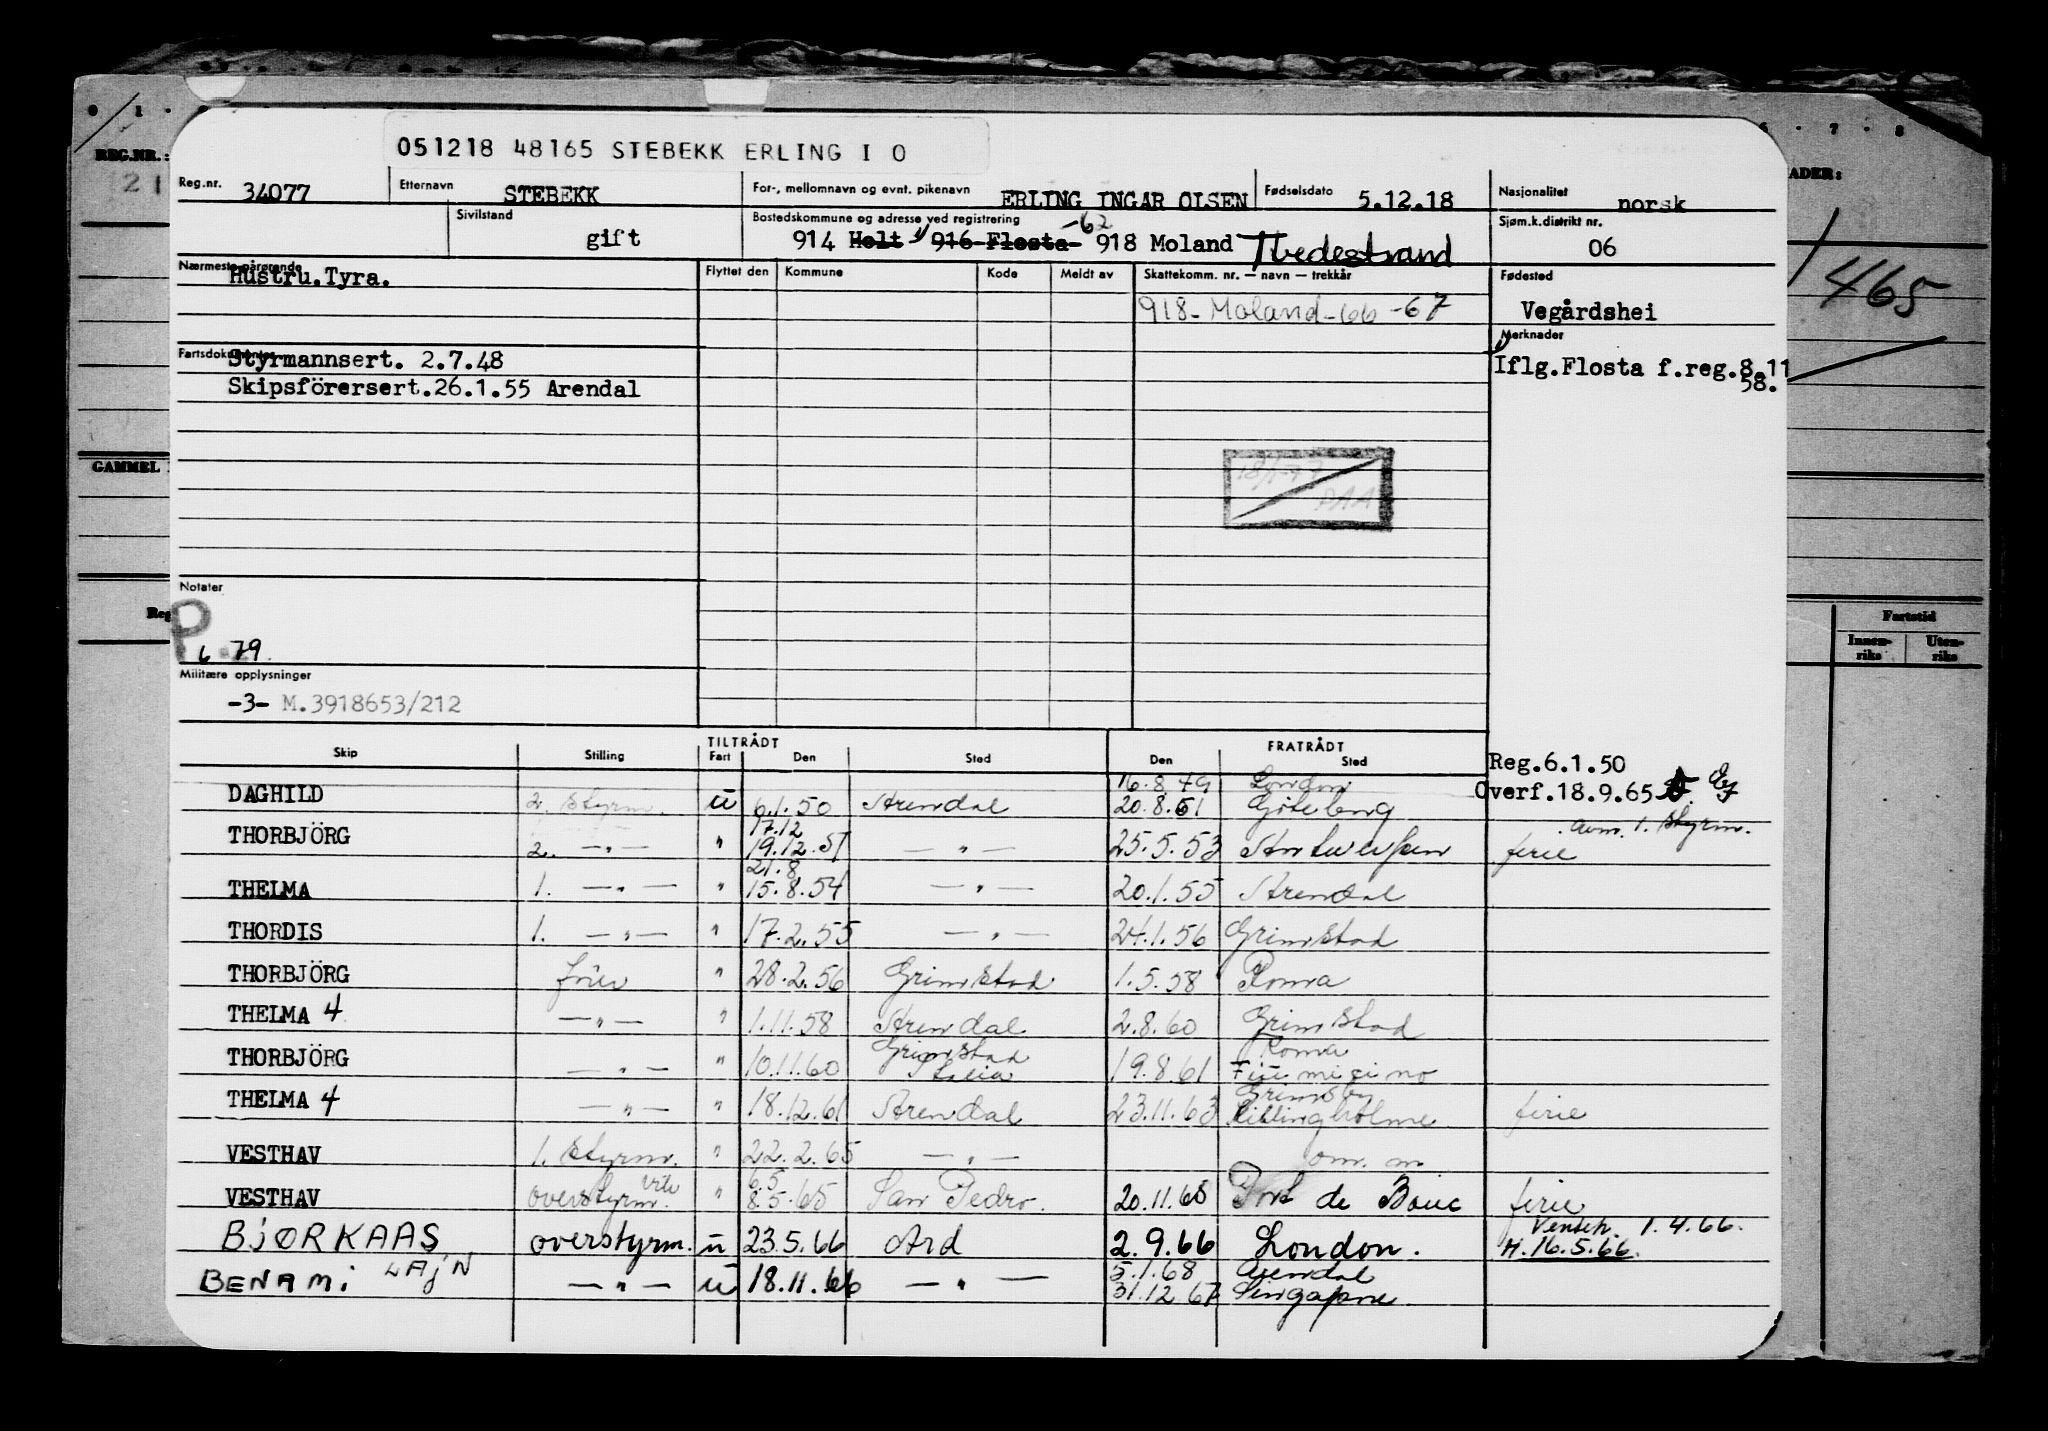 REG.NR.:
051218 48165 STEBEKK ERLING I O
ADER:
Reg.nr. 34077 Etternavn STEBEKK For-, mellomnavn og evnt. pikenavn ERLING INGAR OLSEN Fødselsdato 5.12.18 Nasjonalitet norsk
Sivilstand gift Bostedskommune og adresse ved registrering 914 Holt 1) 916 Flosta -62 918 Moland Tvedestrand Sjøm.k.distrikt nr. 06
Nærmeste pårørende Hustru.Tyra. Flyttet den Kommune Kode Meldt av Skattekomm. nr. — navn — trekkår Fødested
918- Moland-66-67 Vegårdshei
465
Merknader
Fartsdokumenter Styrmannsert. 2.7.48 1) Iflg.Flosta f.reg.8.11
58.
Skipsförersert.26.1.55 Arendal
GAMMEL
Notater
P
6-79.
Fartstid
Innen-riks Uten-riks
Militære opplysninger
-3- M.3918653/212
TILTRÅDT FRATRÅDT
Skip Stilling Fart Den Sted Den Sted
Reg.6.1.50
Overf.18.9.65
16.8.49 London
DAGHILD 2. Styrm. u 6.1.50 Arendal 20.8.51 Göteborg
avm. 1. Styrm.
17.12
THORBJÖRG 2. —"— " 19.12.51 —"— 25.5.53 Antwerpen ferie
21.8
THELMA 1. —"— " 15.8.54 —"— 20.1.55 Arendal
THORDIS 1. —"— " 17.2.55 —"— 24.1.56 Grimstad
THORBJÖRG förer " 28.2.56 Grimstad 1.5.58 Roma
THELMA 4 —"— " 1.11.58 Arendal 2.8.60 Grimstad
Grimstad Roma
THORBJÖRG —"— " 10.11.60 Italia 19.8.61 Fiumicino
Grimsby
THELMA 4 —"— " 18.12.61 Arendal 23.11.63 Killingholme ferie
VESTHAV 1. Styrm. " 22.2.65 —"— om. m
6.5
VESTHAV overstyrm. " 8.5.65 San Pedro. 20.11.65 Port de Bouc ferie
Venteh. 1.4.66.
BJØRKAAS overstyrm. u 23.5.66 Ard 2.9.66 London. H. 16.5.66.
5.1.68 Arendal
BENAMI LAJN —"— u 18.11.66 —"— 31.12.67 Singapore